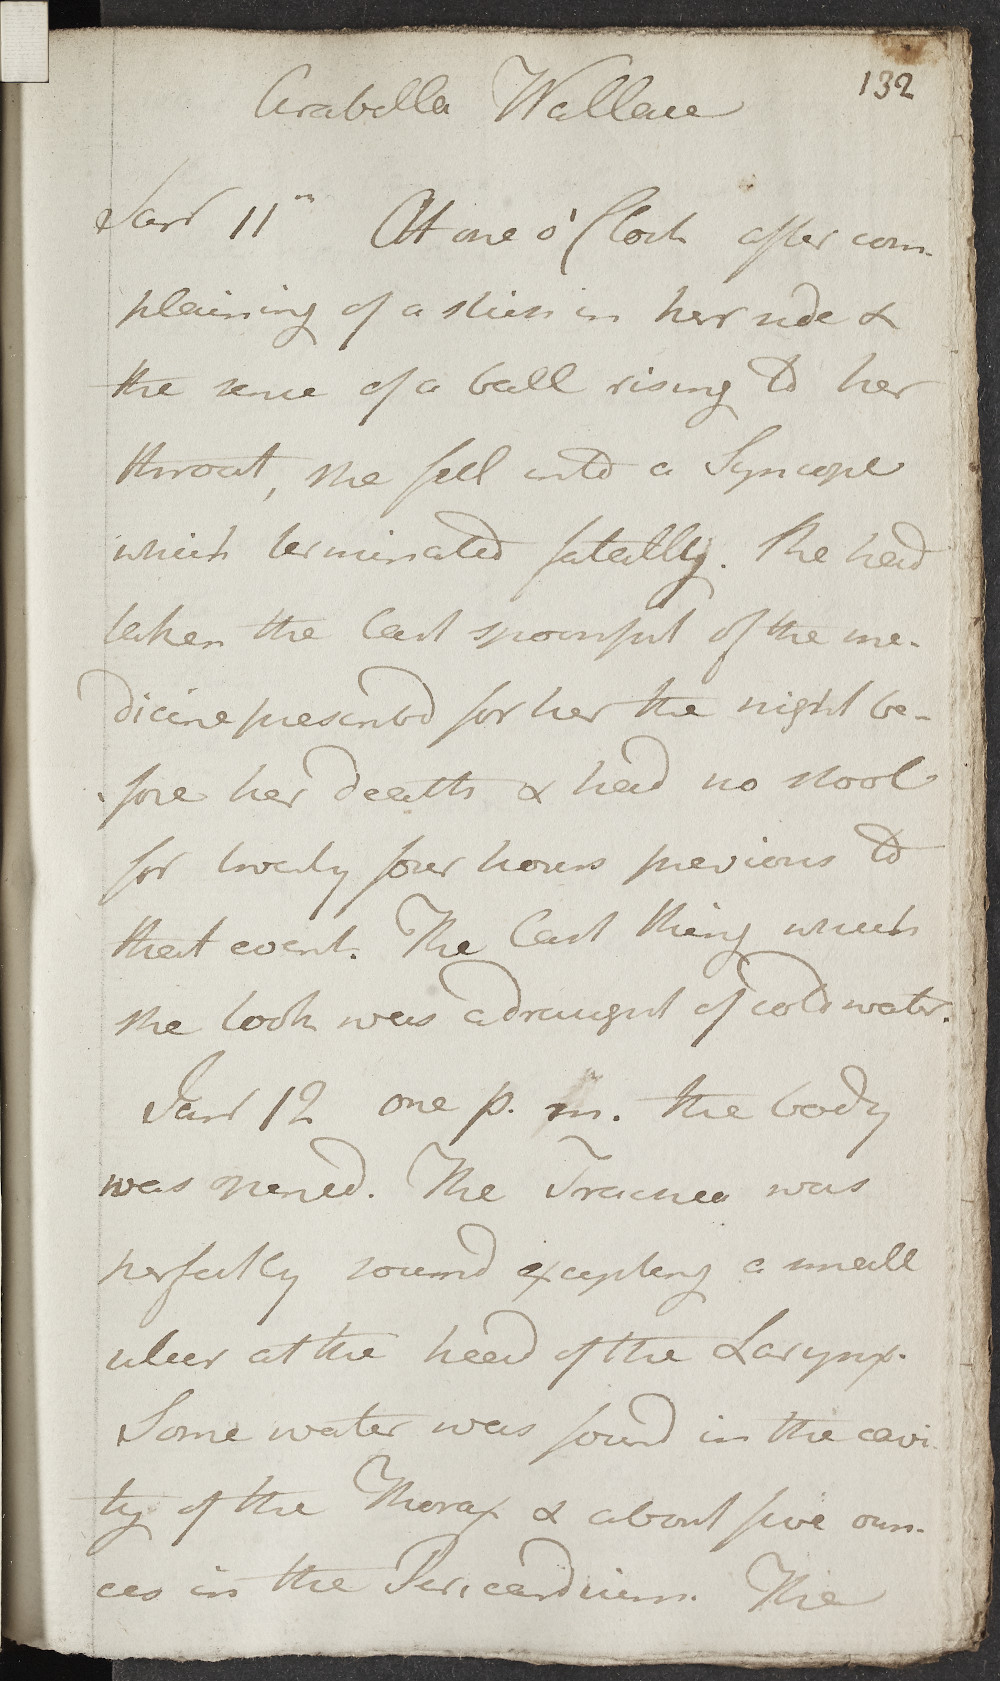 132
Arabella Wallace
Jany 11th At one o'Clock after com-
plaining of a stich in her side &
the sence of a ball rising to her
throat, she fell into a Syncope
which terminated fatally. She had
taken the last spoonful of the me-
dicine prescribd for her the night be-
fore her death & had no stool
for twenty four hours previous to
that event. The last thing which
she took was a draught of cold water.
Jany 12 one p. m. the body
was opened. The Trachea was
perfectly sound excepting a small
ulcer at the head of the Larynx.
Some water was found in the cavi
ty of the Thorax & about five oun-
ces in the Pericardium. The